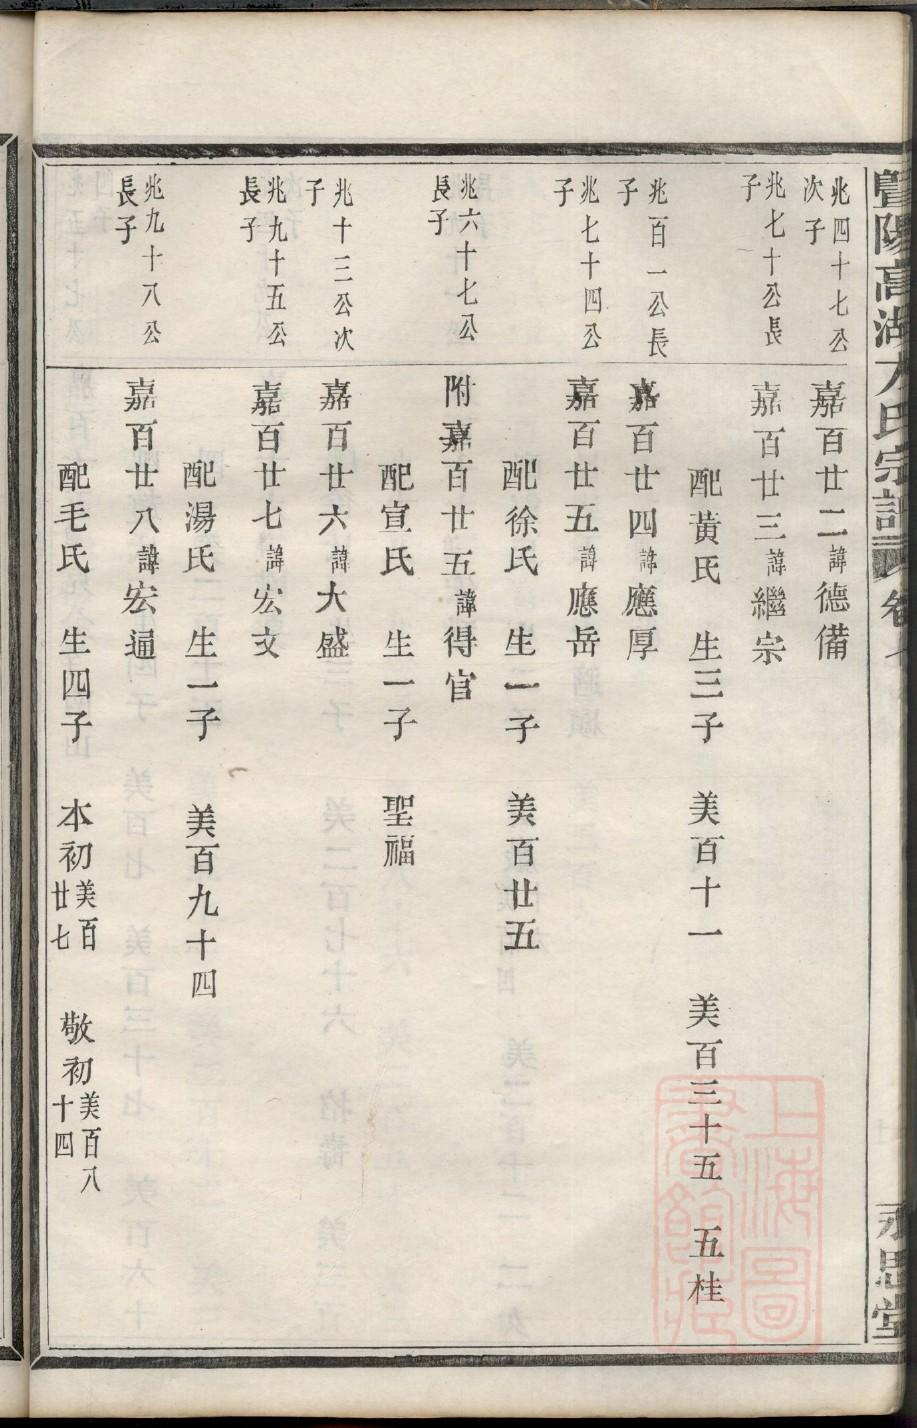 暨陽高湖方氏宗譜 卷七
永思堂
兆四十七公次子
嘉百廿二諱德備
兆七十公長子
嘉百廿三諱繼宗
配黃氏 生三子 美百十一 美百三十五 五桂
兆百一公長子
嘉百廿四諱應厚
兆七十四公子
嘉百廿五諱應岳
配徐氏 生一子 美百廿五
兆六十七公長子
附嘉百廿五諱得官
配宣氏 生一子 聖福
兆十三公次子
嘉百廿六諱大盛
兆九十五公長子
嘉百廿七諱宏文
配湯氏 生一子 美百九十四
兆九十八公長子
嘉百廿八諱宏通
配毛氏 生四子 本初美百廿七 敬初美百八十四
上海圖書館藏